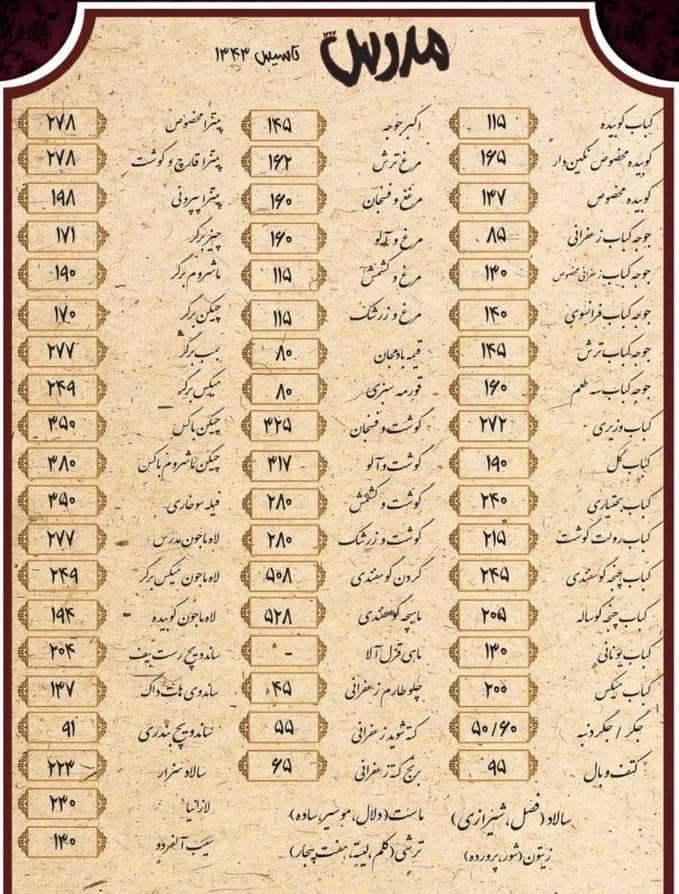 مدرس
تاسیس ۱۳۴۳
کباب کوبیده ۱۱۵
کوبیده مخصوص نگین دار ۱۶۵
کوبیده مخصوص ۱۳۷
جوجه کباب زعفرانی ۸۵
جوجه کباب زعفرانی مخصوص ۱۳۰
جوجه کباب فرانسوی ۱۴۰
جوجه کباب ترش ۱۴۵
جوجه کباب سه طعم ۱۶۰
کباب وزیری ۲۷۲
کباب گل ۱۹۰
کباب بختیاری ۲۴۰
کباب رولت گوشت ۲۱۵
کباب چنجه گوسفندی ۲۴۵
کباب چنجه گوساله ۲۰۵
کباب یونانی ۱۳۰
کباب میکس ۲۰۰
جگر / جگر دنبه ۵۰/۶۰
کتف و بال ۹۵
اکبر جوجه ۱۴۵
مرغ ترش ۱۶۲
مرغ و فسنجان ۱۶۰
مرغ و آلو ۱۶۰
مرغ و کشمش ۱۱۵
مرغ و زرشک ۱۱۵
قیمه بادمجان ۸۰
قورمه سبزی ۸۰
گوشت و فسنجان ۳۲۵
گوشت و آلو ۳۱۷
گوشت و کشمش ۲۸۰
گوشت و زرشک ۲۸۰
گردن گوسفندی ۵۰۸
ماهیچه گوسفندی ۵۲۸
ماهی قزل آلا -
چلو طارم زعفرانی ۴۵
کته شوید زعفرانی ۵۵
برنج کته زعفرانی ۶۵
پیتزا مخصوص ۲۷۸
پیتزا قارچ و گوشت ۲۷۸
پیتزا پپرونی ۱۹۸
چیزبرگر ۱۷۱
ماشروم برگر ۱۹۰
چیکن برگر ۱۷۰
بمب برگر ۲۷۷
میکس برگر ۲۴۹
چیکن باکس ۳۵۰
چیکن ماشروم باکس ۳۸۰
فیله سوخاری ۳۵۰
لاه ماجون مدرس ۲۷۷
لاه ماجون میکس برگر ۲۴۹
لاه ماجون کوبیده ۱۹۴
ساندویچ رست بیف ۲۰۴
ساندوی هات داگ ۱۳۷
ساندویچ بندری ۹۱
سالاد سزار ۲۲۳
لازانیا ۲۳۰
سیب آلفردو ۱۳۰
سالاد (فصل، شیرازی)
زیتون (شور، پرورده)
ماست (دلال، موسیر، ساده)
ترشی (کلم، لیته، هفت بیجار)